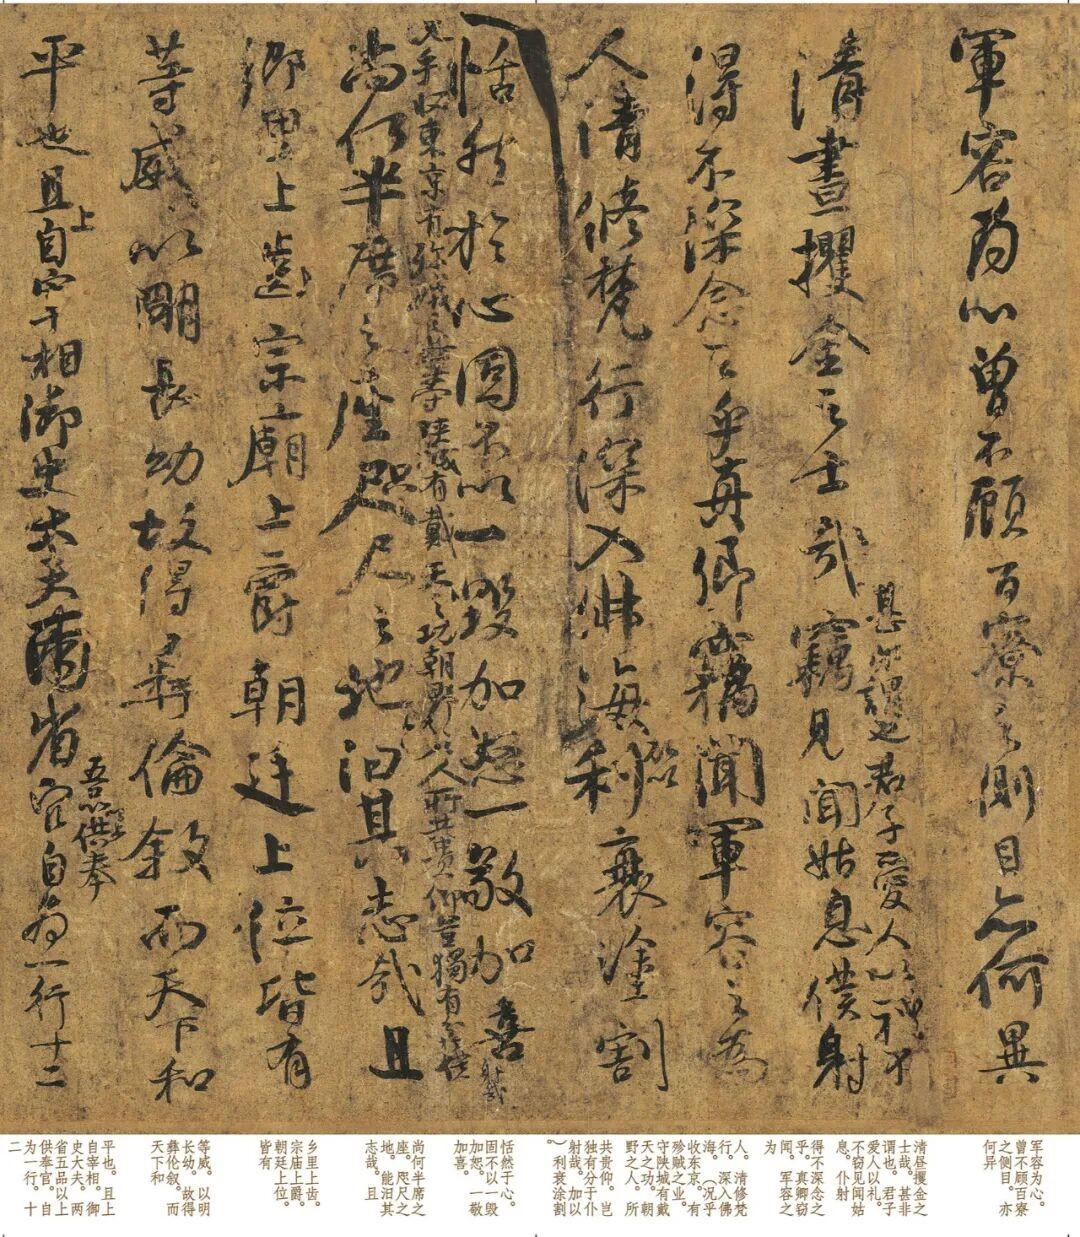 軍容为心曾不顧百寮之側目亦何異
清晝攫金之士哉
甚非謂也君子愛人以礼不
竊見聞姑息僕射
得不深念之乎真卿竊聞軍容之為
人清修梵行深入佛海
利衰塗割
恬然於心固不以一毀加怒一敬加喜
況乎收東京有殄賊之業守陝城有戴天之功朝野之人所共貴仰豈獨有分於僕射哉
尚何半席之座咫尺之地汩其志哉且
鄉里上齒宗廟上爵朝廷上位皆有
等威以明長幼故得彝倫敘而天下和
平也且上自宰相御史大夫兩省
五品以上供奉
官自为一行十二
军容为心。
曾不顾百寮
之侧目。亦
何异
清昼攫金之
士哉。甚非
谓也。君子
爱人以礼。
不窃见闻姑
息。仆射
得不深念之
乎！真卿窃
闻。军容之
为
人。清修梵
行。深入佛
海。（况乎
收东京。有
殄贼之业。
守陕城有戴
天之功。朝
野之人。所
共贵仰。岂
独有分于仆
射哉。加以
）利衰涂割
。
恬然于心。
固不以一毁
加怒。一敬
加喜。
尚何半席之
座。咫尺之
地。能汩其
志哉。且
乡里上齿。
宗庙上爵。
朝廷上位。
皆有
等威。以明
长幼。故得
彝伦叙。而
天下和
平也。且上
自宰相。御
史大夫。两
省五品以上
供奉官。自
为一行。十
二